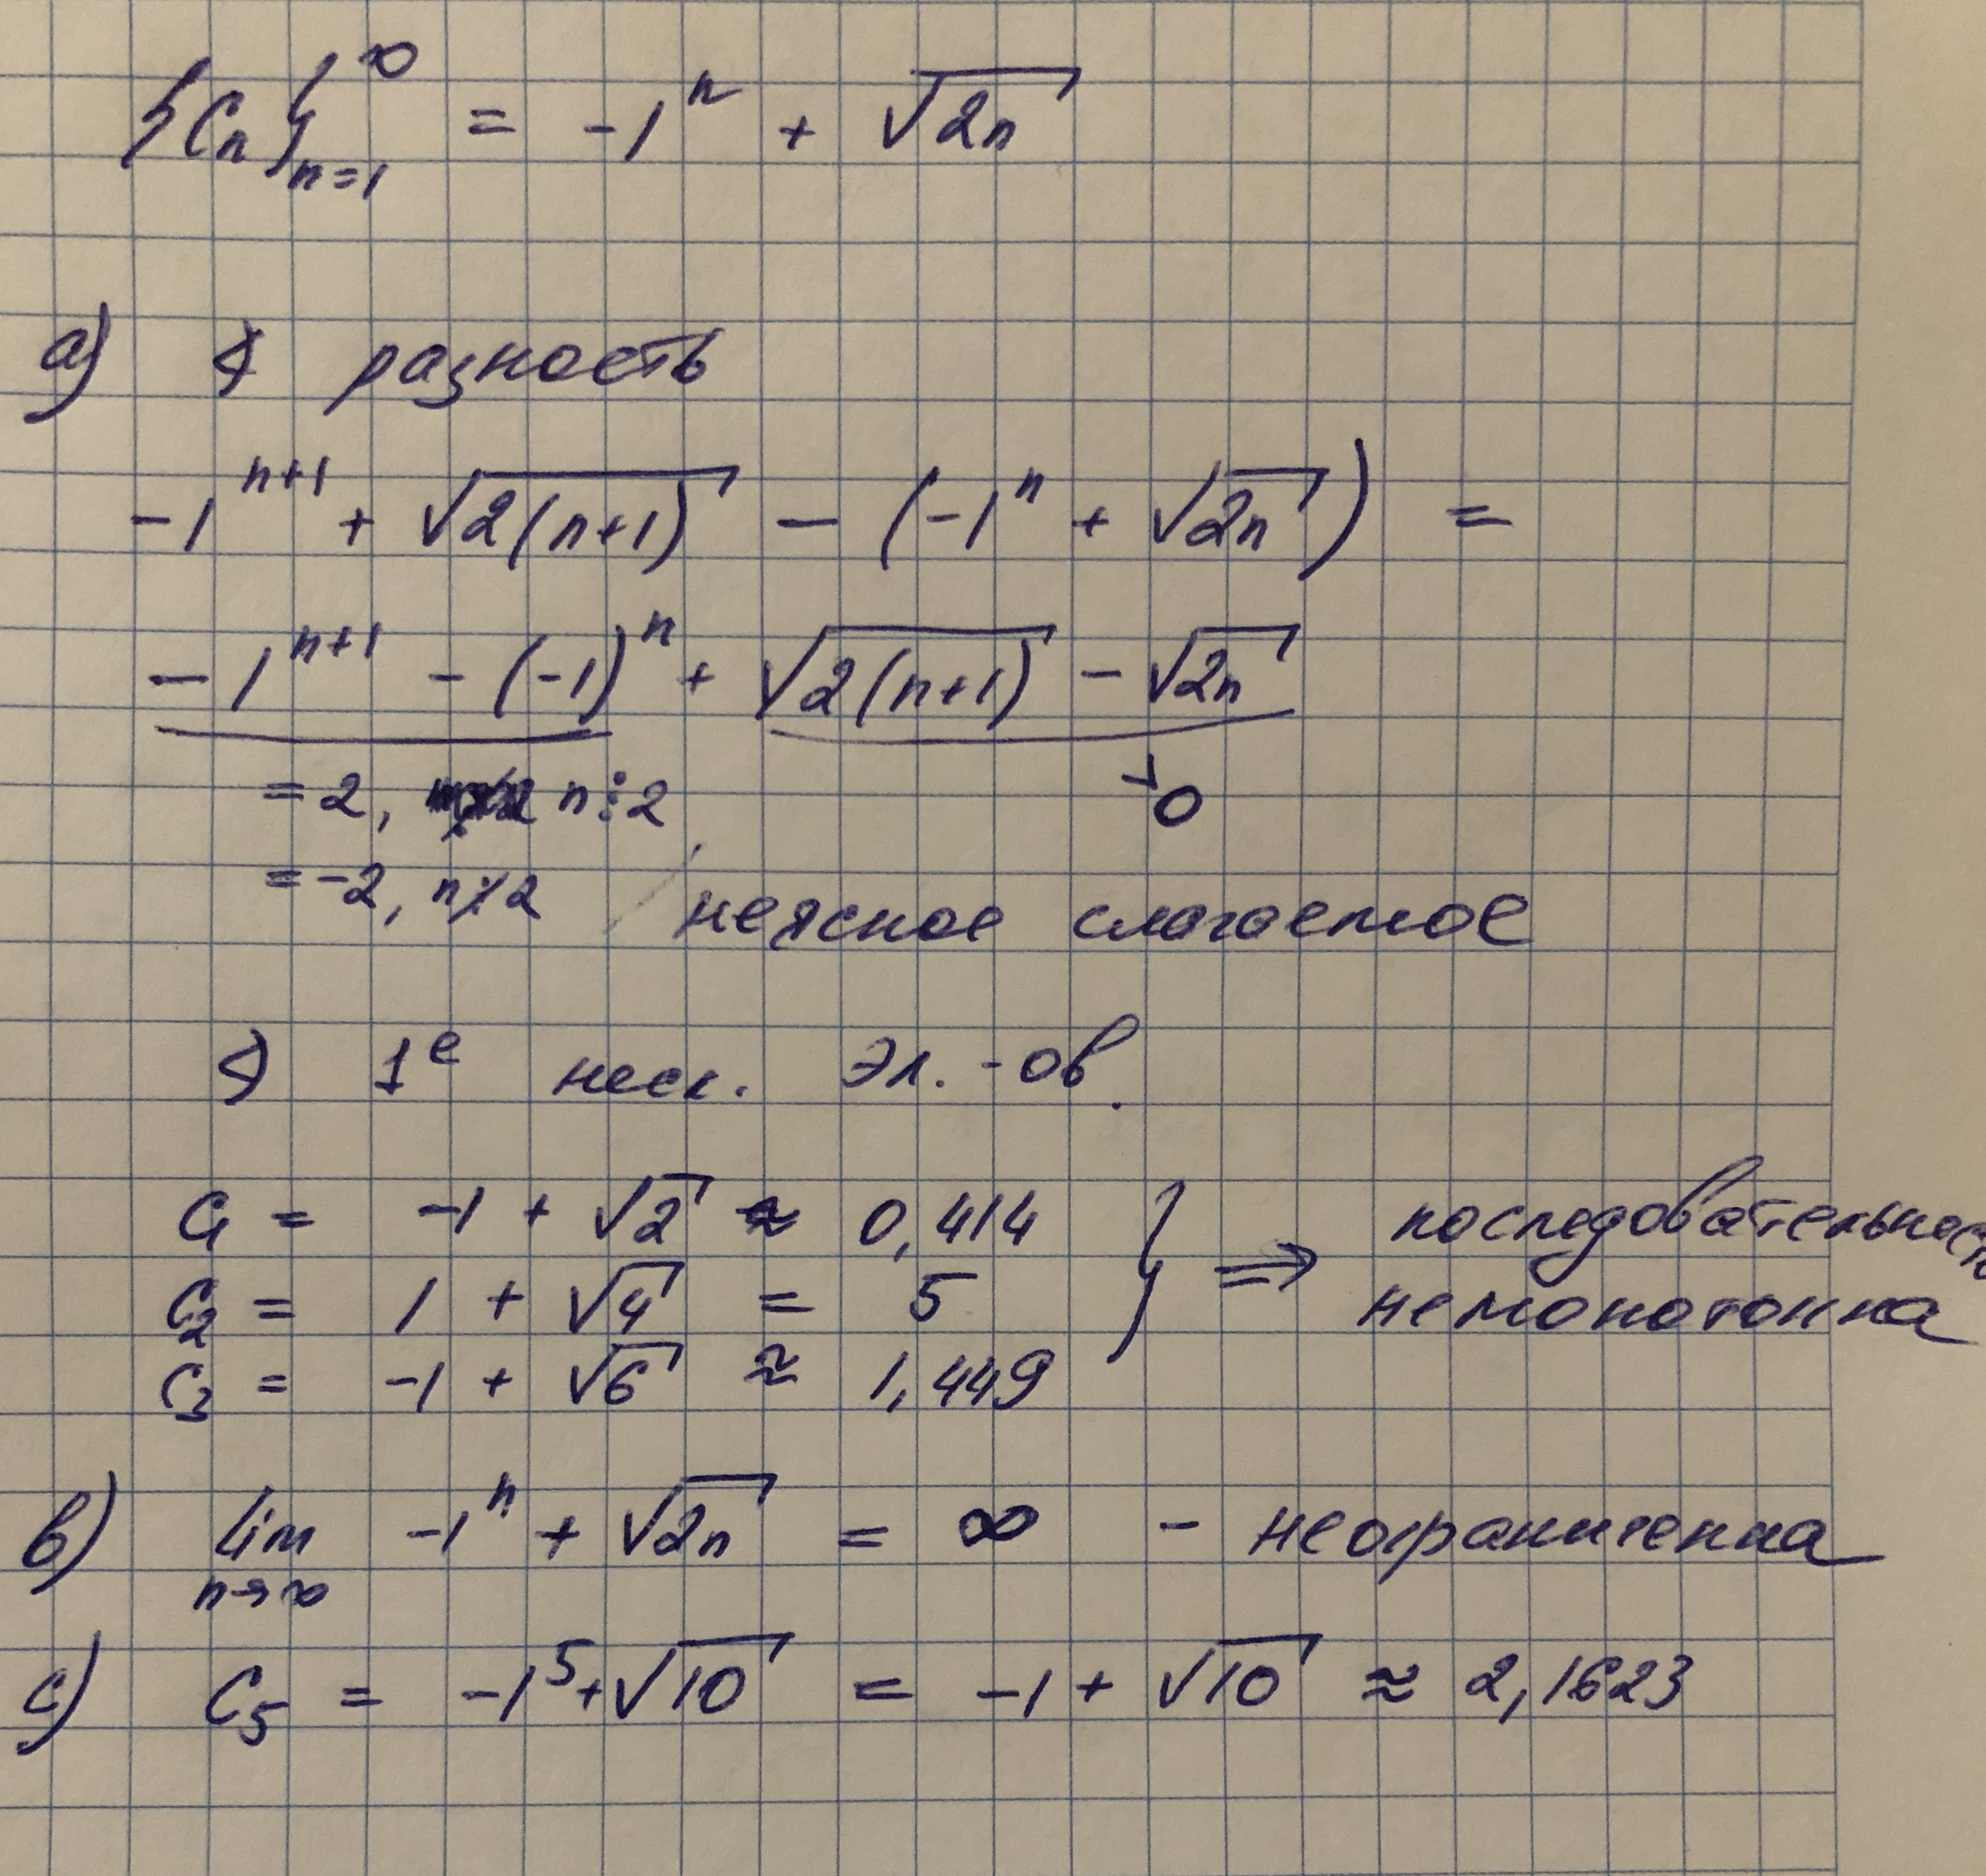 {Cn}^∞_{n=1} = -1^n + √(2n)
a) ∢ разность
-1^{n+1} + √(2(n+1)) - (-1^n + √(2n)) =
-1^{n+1} - (-1)^n + √(2(n+1)) - √(2n)
= 2, n⋮2 >0
= -2, n⋮̸2 неясное слагаемое
∢ 1^е неск. эл.-ов.
C1 = -1 + √2 ≈ 0,414
C2 = 1 + √4 = 5 } ⇒ последовательность немонотонна
C3 = -1 + √6 ≈ 1,449
b) lim_{n→∞} -1^n + √(2n) = ∞ - неограниченна
c) C5 = -1^5 + √10 = -1 + √10 ≈ 2,1623